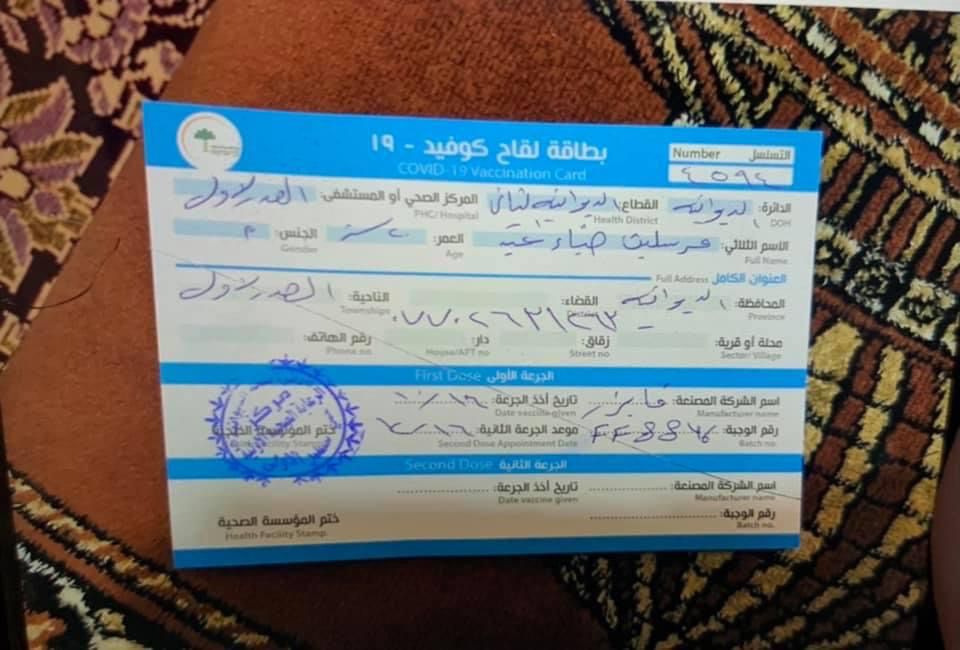 بطاقة لقاح كوفيد - ١٩
COVID-19 Vaccination Card
التسلسل Number
٤٥٩٤
الدائرة: الديوانية القطاع: الديوانية الثاني المركز الصحي أو المستشفى: الصدر الاول
DOH Health District PHC/ Hospital
الاسم الثلاثي: ضياء العمر: ٢٠ سنة الجنس: م
Full Name Age Gender
العنوان الكامل Full Address
المحافظة: الديوانية القضاء: الناحية: الصدر الاول
Province District Townships
محلة أو قرية: زقاق: دار: رقم الهاتف:
Sector/ Village Street no House/APT no Phone no
الجرعة الأولى First Dose
اسم الشركة المصنعة: فايزر تاريخ أخذ الجرعة:
Manufacturer name Date vaccine given
رقم الوجبة: موعد الجرعة الثانية: ختم المؤسسة الصحية
Batch no. Second Dose Appointment Date Health Facility Stamp
الجرعة الثانية Second Dose
اسم الشركة المصنعة: تاريخ أخذ الجرعة:
Manufacturer name Date vaccine given
رقم الوجبة: ختم المؤسسة الصحية
Batch no. Health Facility Stamp